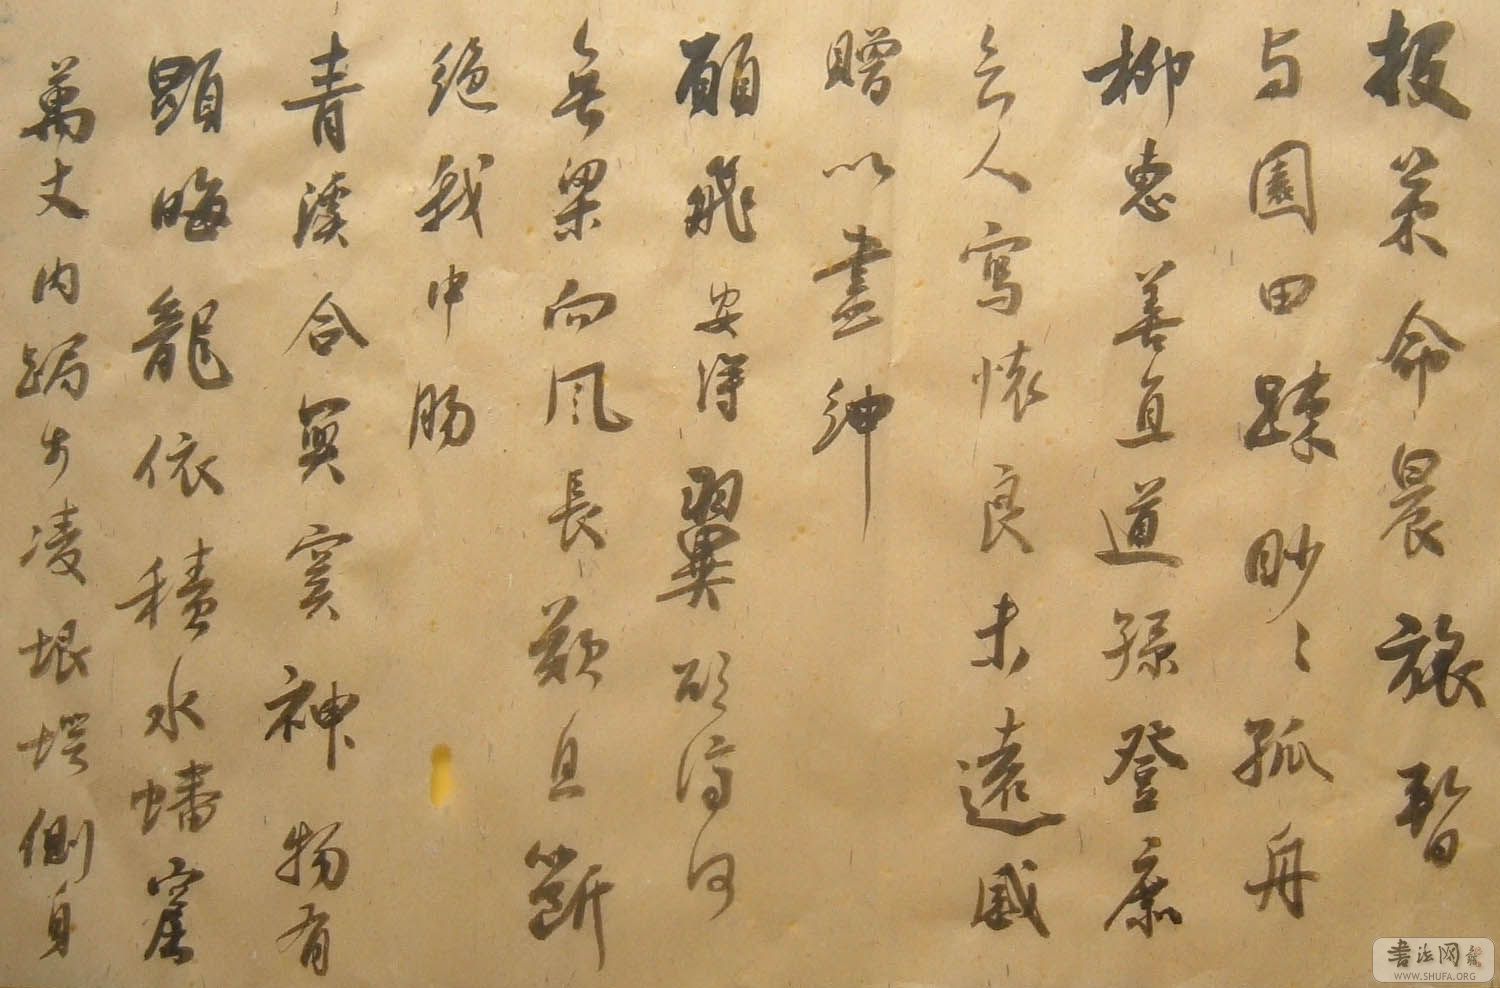 投策命晨旅暫
与園田踈眇〻孤舟
柳惠善直道孫登庶
知人寫懷良未遠感
贈以書紳
願飛安得翼欲濟河
無梁向風長歎息斷
絕我中腸
青溪合冥寞神物有
顯晦龍依積水蟠窟
萬丈內跼步凌垠堮側身
書法网
WWW.SHUFA.ORG